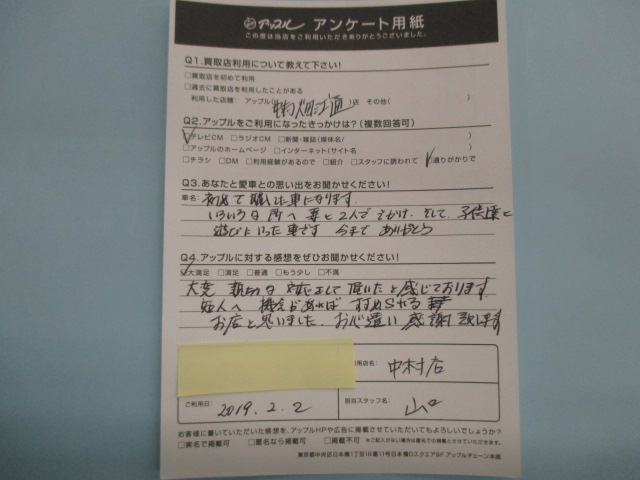 アップル アンケート用紙
この度は当店をご利用いただきありがとうございました。
Q1.買取店利用について教えて下さい!
□買取店を初めて利用
□過去に買取店を利用したことがある
利用した店舗: アップル( )店 その他( )
Q2.アップルをご利用になったきっかけは?(複数回答可)
□テレビCM □ラジオCM □新聞・雑誌(媒体名/ )
□アップルのホームページ □インターネット(サイト名 )
□チラシ □DM □利用経験があるので □紹介 □スタッフに誘われて □通りがかりで
Q3.あなたと愛車との思い出をお聞かせください!
車名: 初めて購入した車になります
いろいろな所へ妻と2人ででかけ、そして、子供達と
遊びにいった車です 今まで ありがとう
Q4.アップルに対する感想をぜひお聞かせください!
□大満足 □満足 □普通 □もう少し □不満
大変 親切な 対応をして頂いたと感じております
知人へ 機会があれば すすめられる
お店と思いました。お心遣い 感謝致します
用店名: 中村店
ご利用日: 2019.2.2
担当スタッフ名: 山口
お客様に書いていただいた感想を、アップルHPや広告に掲載させていただいてもよろしいでしょうか?
□実名で掲載可 □匿名なら掲載可 □掲載不可 ※ご記入がない場合は匿名での掲載とさせていただきます。
東京都中央区日本橋1丁目16番11号日本橋Dスクエア5F アップルチェーン本部